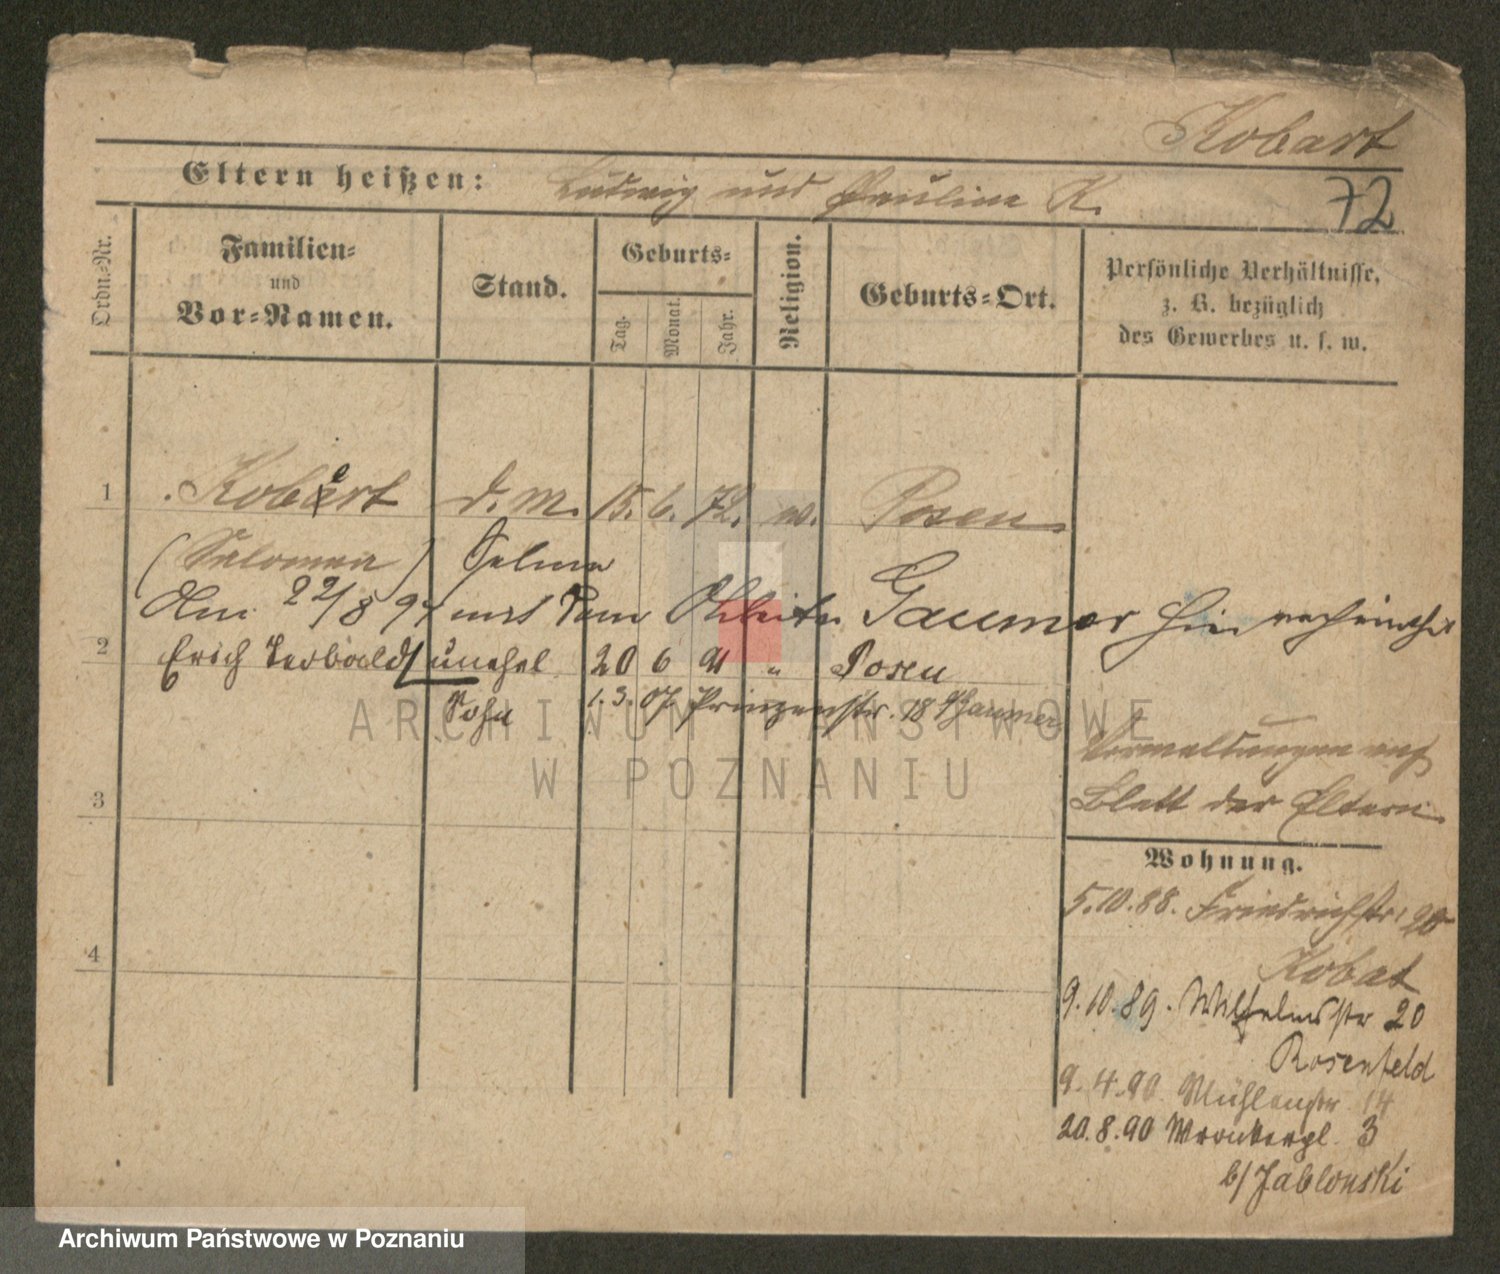 Kobart
Eltern heißen: Ludwig und Pauline K.
72
Ordn.-Nr.
Familien-
und
Vor-Namen.
Stand.
Geburts-
Tag.
Monat.
Jahr.
Religion.
Geburts-Ort.
Persönliche Verhältnisse,
z. B. bezüglich
des Gewerbes u. s. w.
1 Kobart d. M. 15. 6. 72. w. Posen
(Salomea) Selma
Am 22/8 94 mit dem Gaumer
2 Erich unehel 20 6 91 " Posen
Sohn 1.3.07 Prinzenstr. 18 Gaumer
ARCHIWUM PAŃSTWOWE
W POZNANIU
Vermeldungen auf
Blatt der Eltern.
3
Wohnung.
5.10.88. Friedrichstr. 20
Kobat
4
9.10.89. Wilhelmstr 20
Rosenfeld
9.4.90 Mühlenstr 14
20.8.90 Wronkerpl. 3
b/Jablonski
Archiwum Państwowe w Poznaniu